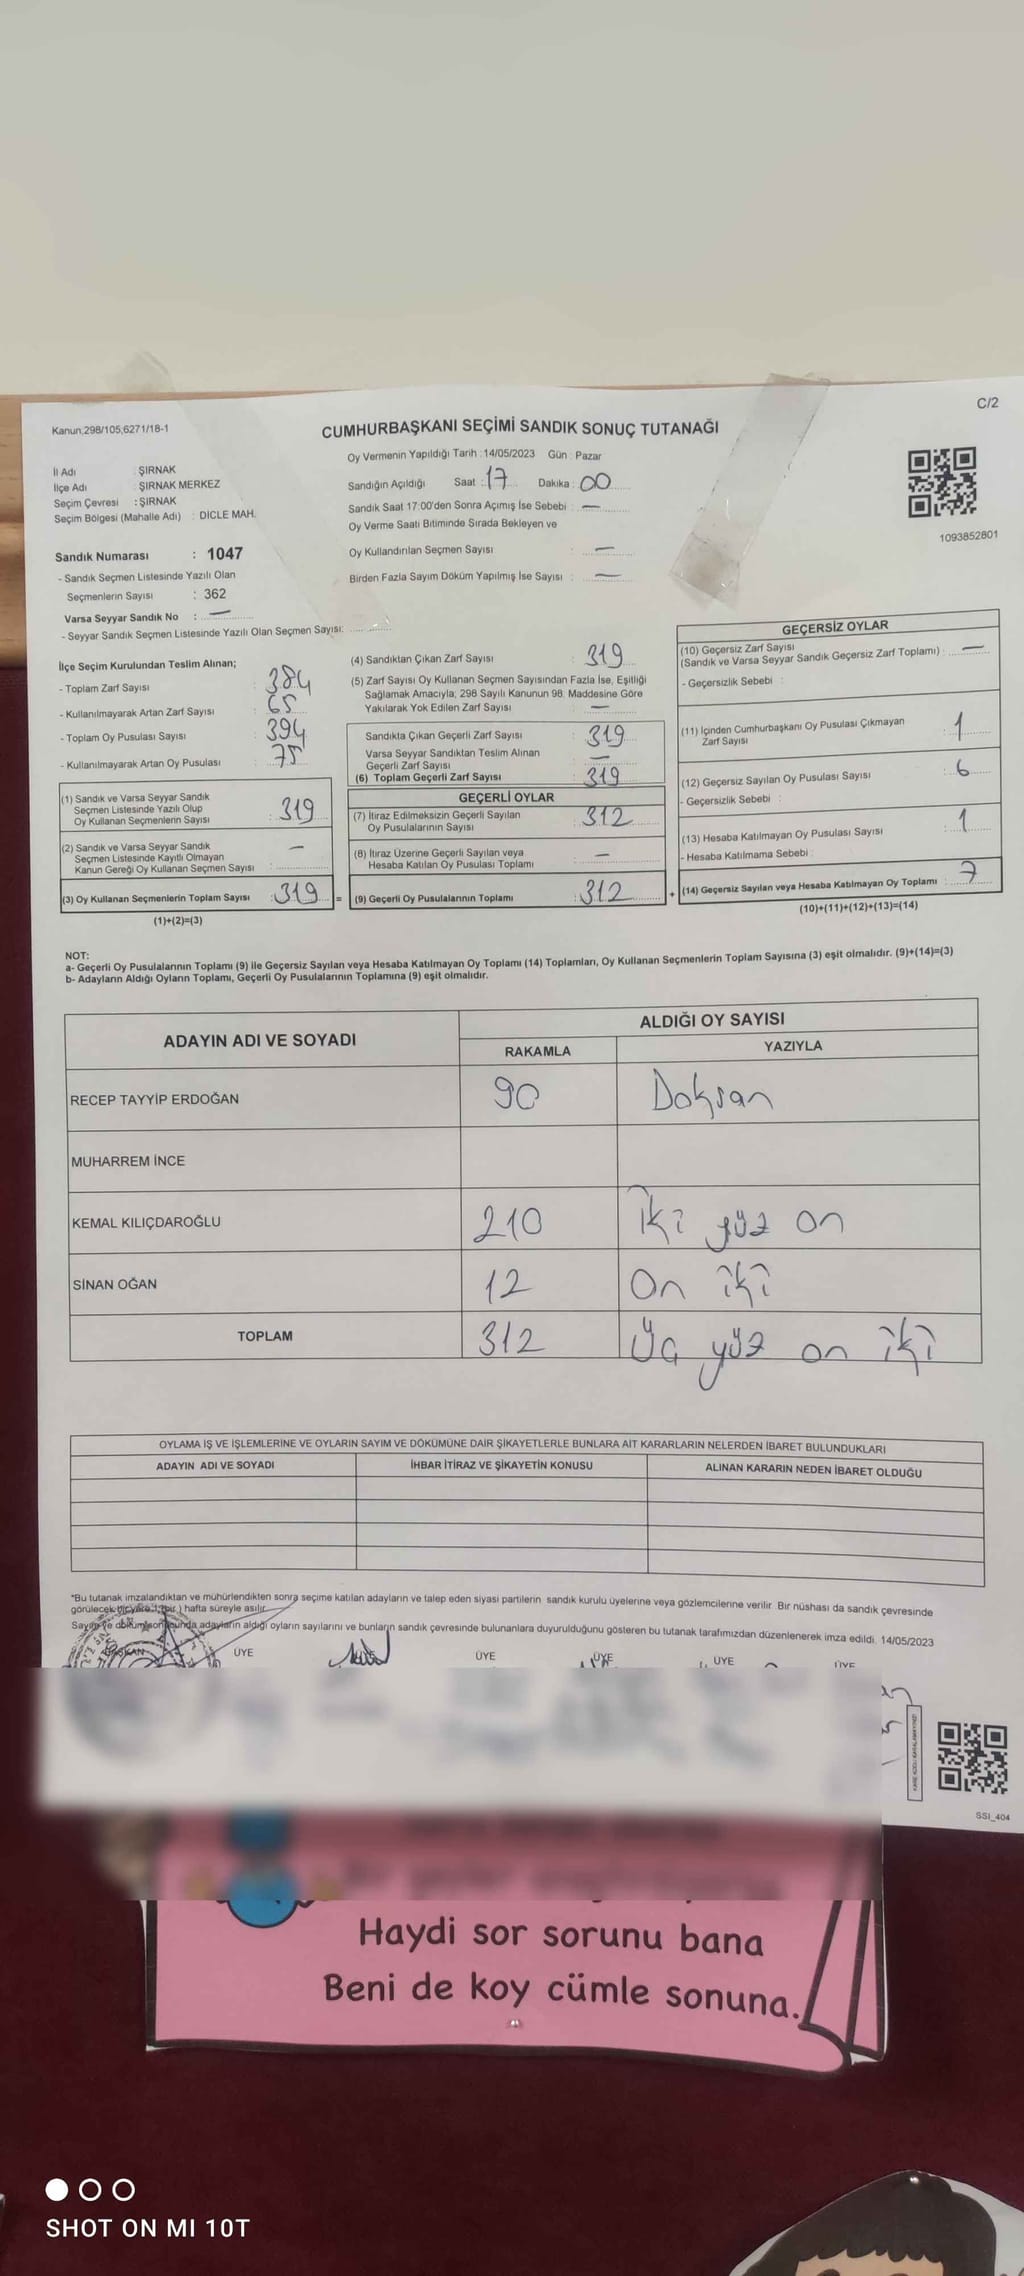 C/2
Kanun,298/105,6271/18-1
CUMHURBAŞKANI SEÇİMİ SANDIK SONUÇ TUTANAĞI
İl Adı : ŞIRNAK
İlçe Adı : ŞIRNAK MERKEZ
Seçim Çevresi : ŞIRNAK
Seçim Bölgesi (Mahalle Adı) : DİCLE MAH.
Oy Vermenin Yapıldığı Tarih : 14/05/2023 Gün : Pazar
Sandığın Açıldığı Saat : 17 Dakika : 00
Sandık Saat 17:00'den Sonra Açımış İse Sebebi : —
Oy Verme Saati Bitiminde Sırada Bekleyen ve
Oy Kullandırılan Seçmen Sayısı : —
Birden Fazla Sayım Döküm Yapılmış İse Sayısı : —
1093852801
Sandık Numarası : 1047
- Sandık Seçmen Listesinde Yazılı Olan
Seçmenlerin Sayısı : 362
Varsa Seyyar Sandık No : —
- Seyyar Sandık Seçmen Listesinde Yazılı Olan Seçmen Sayısı:
İlçe Seçim Kurulundan Teslim Alınan;
- Toplam Zarf Sayısı : 384
- Kullanılmayarak Artan Zarf Sayısı : 65
- Toplam Oy Pusulası Sayısı : 394
- Kullanılmayarak Artan Oy Pusulası : 75
(1) Sandık ve Varsa Seyyar Sandık
Seçmen Listesinde Yazılı Olup
Oy Kullanan Seçmenlerin Sayısı : 319
(2) Sandık ve Varsa Seyyar Sandık
Seçmen Listesinde Kayıtlı Olmayan
Kanun Gereği Oy Kullanan Seçmen Sayısı : —
(3) Oy Kullanan Seçmenlerin Toplam Sayısı : 319 =
(1)+(2)=(3)
(4) Sandıktan Çıkan Zarf Sayısı : 319
(5) Zarf Sayısı Oy Kullanan Seçmen Sayısından Fazla İse, Eşitliği
Sağlamak Amacıyla, 298 Sayılı Kanunun 98. Maddesine Göre
Yakılarak Yok Edilen Zarf Sayısı : —
Sandıkta Çıkan Geçerli Zarf Sayısı : 319
Varsa Seyyar Sandıktan Teslim Alınan
Geçerli Zarf Sayısı : —
(6) Toplam Geçerli Zarf Sayısı : 319
GEÇERLİ OYLAR
(7) İtiraz Edilmeksizin Geçerli Sayılan
Oy Pusulalarının Sayısı : 312
(8) İtiraz Üzerine Geçerli Sayılan veya
Hesaba Katılan Oy Pusulası Toplamı : —
(9) Geçerli Oy Pusulalarının Toplamı : 312 +
GEÇERSİZ OYLAR
(10) Geçersiz Zarf Sayısı
(Sandık ve Varsa Seyyar Sandık Geçersiz Zarf Toplamı) : —
- Geçersizlik Sebebi :
(11) İçinden Cumhurbaşkanı Oy Pusulası Çıkmayan
Zarf Sayısı : 1
(12) Geçersiz Sayılan Oy Pusulası Sayısı : 6
- Geçersizlik Sebebi :
(13) Hesaba Katılmayan Oy Pusulası Sayısı : 1
- Hesaba Katılmama Sebebi :
(14) Geçersiz Sayılan veya Hesaba Katılmayan Oy Toplamı : 7
(10)+(11)+(12)+(13)=(14)
NOT:
a- Geçerli Oy Pusulalarının Toplamı (9) ile Geçersiz Sayılan veya Hesaba Katılmayan Oy Toplamı (14) Toplamları, Oy Kullanan Seçmenlerin Toplam Sayısına (3) eşit olmalıdır. (9)+(14)=(3)
b- Adayların Aldığı Oyların Toplamı, Geçerli Oy Pusulalarının Toplamına (9) eşit olmalıdır.
ADAYIN ADI VE SOYADI ALDIĞI OY SAYISI
RAKAMLA YAZIYLA
RECEP TAYYİP ERDOĞAN 90 Doksan
MUHARREM İNCE
KEMAL KILIÇDAROĞLU 210 İki yüz on
SİNAN OĞAN 12 On iki
TOPLAM 312 Üç yüz on iki
OYLAMA İŞ VE İŞLEMLERİNE VE OYLARIN SAYIM VE DÖKÜMÜNE DAİR ŞİKAYETLERLE BUNLARA AİT KARARLARIN NELERDEN İBARET BULUNDUKLARI
ADAYIN ADI VE SOYADI İHBAR İTİRAZ VE ŞİKAYETİN KONUSU ALINAN KARARIN NEDEN İBARET OLDUĞU
*Bu tutanak imzalandıktan ve mühürlendikten sonra seçime katılan adayların ve talep eden siyasi partilerin sandık kurulu üyelerine veya gözlemcilerine verilir. Bir nüshası da sandık çevresinde
görülecek bir yere 1 (bir ) hafta süreyle asılır.
Sayım ve döküm sonucunda adayların aldığı oyların sayılarını ve bunların sandık çevresinde bulunanlara duyurulduğunu gösteren bu tutanak tarafımızdan düzenlenerek imza edildi. 14/05/2023
BAŞKAN ÜYE ÜYE ÜYE ÜYE ÜYE
SSI_404
Haydi sor sorunu bana
Beni de koy cümle sonuna.
SHOT ON MI 10T